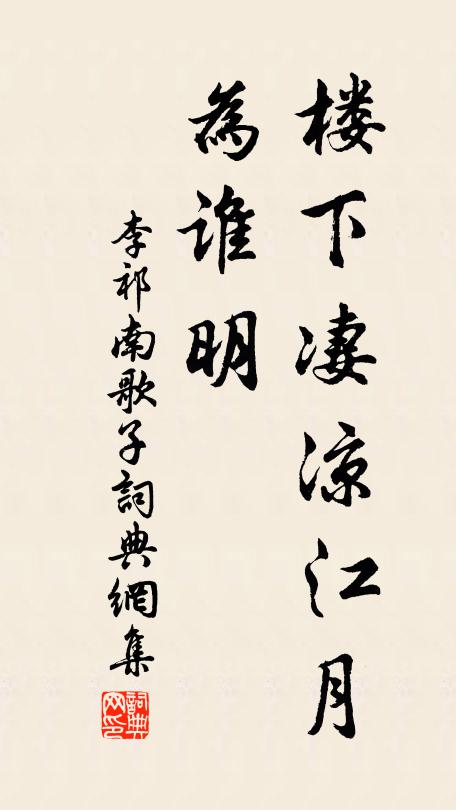 楼下凄凉江月
為誰明
李祁南歌子詞典網集
詞典网印